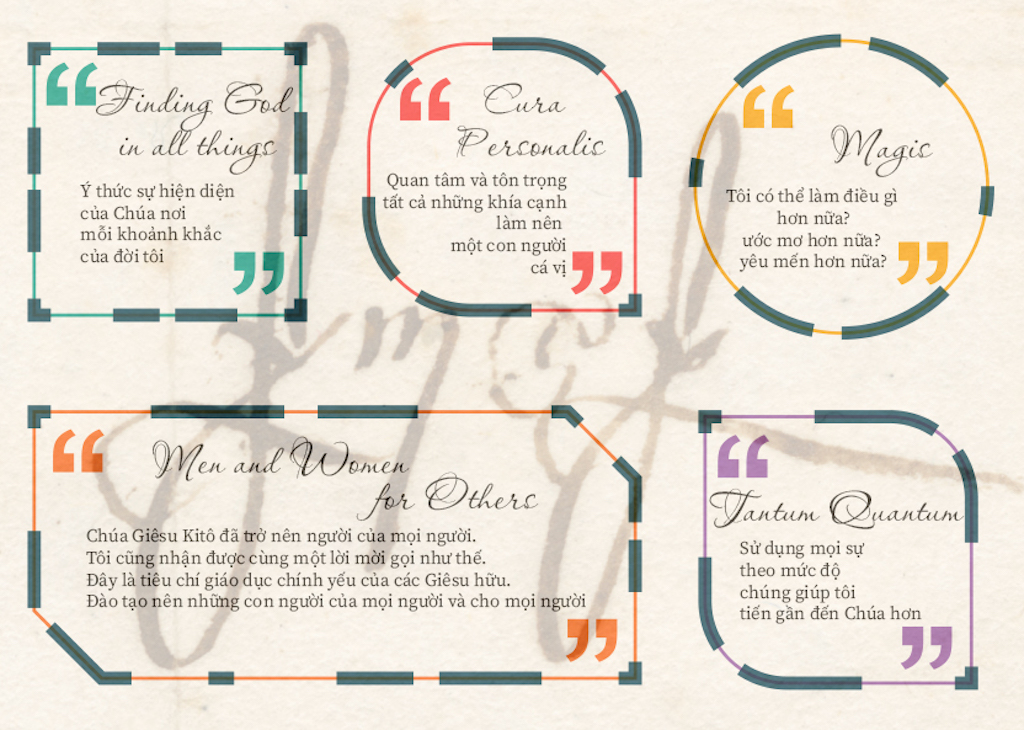 Finding God
in all things
Ý thức sự hiện diện
của Chúa nơi
mỗi khoảnh khắc
của đời tôi
Cura
Personalis
Quan tâm và tôn trọng
tất cả những khía cạnh
làm nên
một con người
cá vị
Magis
Tôi có thể làm điều gì
hơn nữa?
ước mơ hơn nữa?
yêu mến hơn nữa?
Men and Women
for Others
Chúa Giêsu Kitô đã trở nên người của mọi người.
Tôi cũng nhận được cùng một lời mời gọi như thế.
Đây là tiêu chí giáo dục chính yếu của các Giêsu hữu.
Đào tạo nên những con người của mọi người và cho mọi người
Tantum Quantum
Sử dụng mọi sự
theo mức độ
chúng giúp tôi
tiến gần đến Chúa hơn